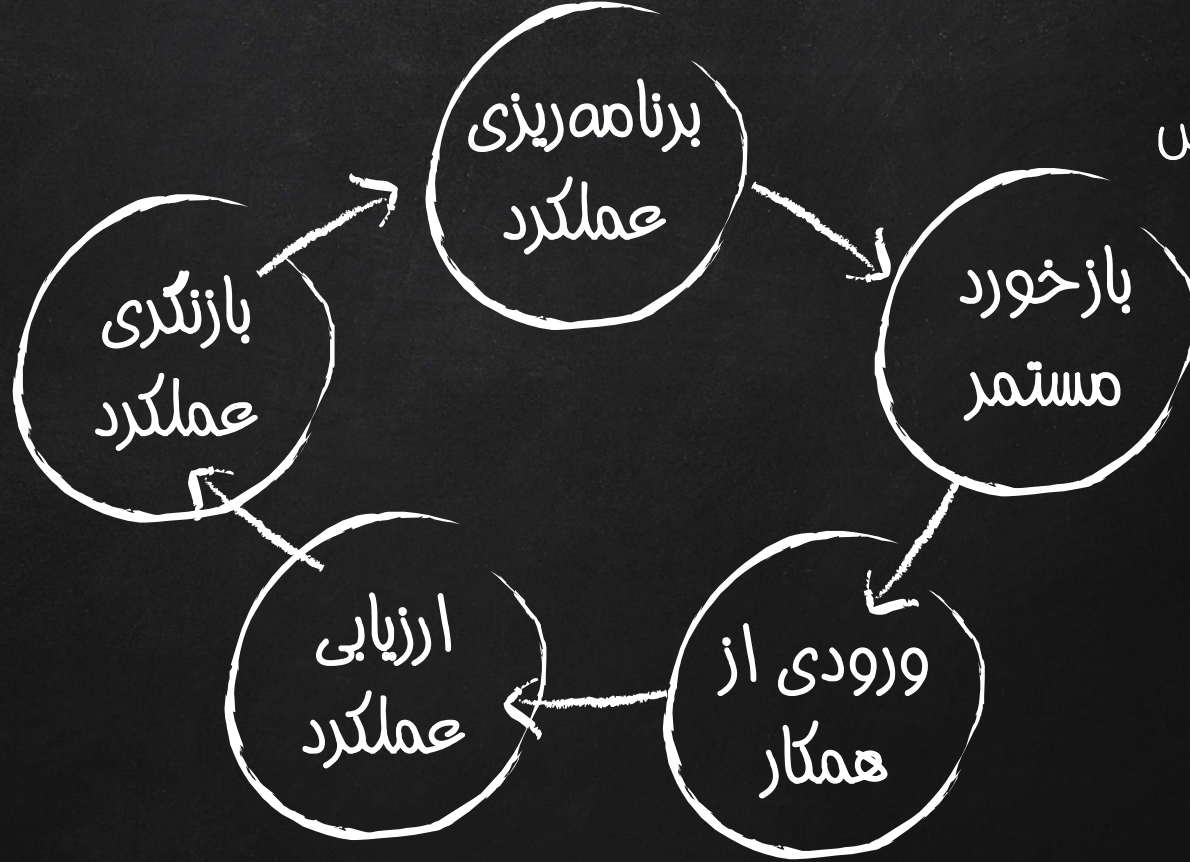 برنامه‌ریزی
عملکرد
بازخورد
مستمر
ورودی از
همکار
ارزیابی
عملکرد
بازنگری
عملکرد